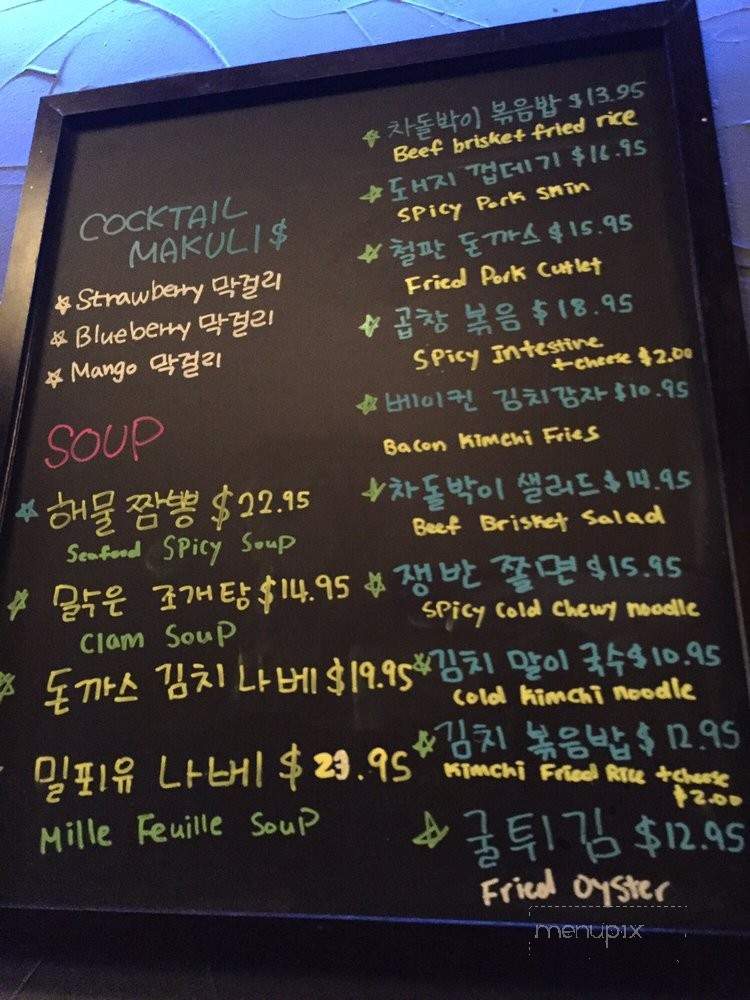 COCKTAIL
MAKULI $
Strawberry 막걸리
Blueberry 막걸리
Mango 막걸리
SOUP
해물 짬뽕 $22.95
Seafood Spicy Soup
맑은 조개탕 $14.95
Clam Soup
돈까스 김치 나베 $19.95
밀푀유 나베 $23.95
Mille Feuille Soup
차돌박이 볶음밥 $13.95
Beef brisket fried rice
돼지 껍데기 $16.95
Spicy Pork Skin
철판 돈까스 $15.95
Fried Pork Cutlet
곱창 볶음 $18.95
Spicy Intestine
+cheese $2.00
베이컨 김치감자 $10.95
Bacon Kimchi Fries
차돌박이 샐러드 $14.95
Beef Brisket Salad
쟁반 쫄면 $15.95
Spicy Cold Chewy noodle
김치 말이 국수 $10.95
Cold Kimchi noodle
김치 볶음밥 $12.95
Kimchi Fried Rice +cheese
$2.00
굴튀김 $12.95
Fried Oyster
menupix